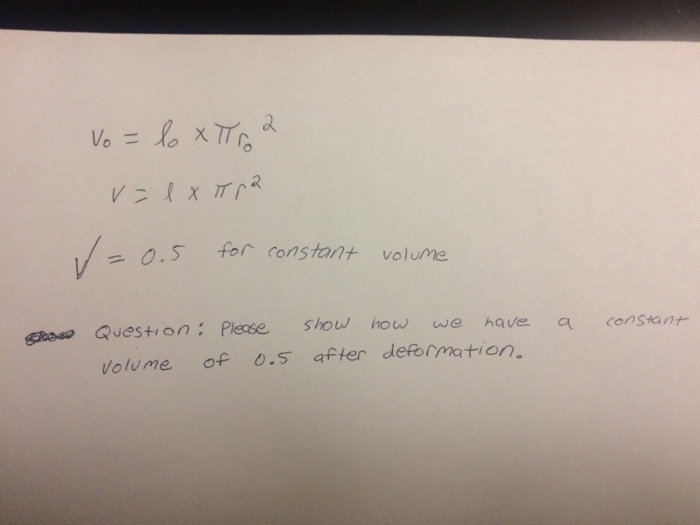 V₀ = l₀ × πr₀²
V = l × πr²
√ = 0.5 for constant volume
Question: Please show how we have a constant
volume of 0.5 after deformation.